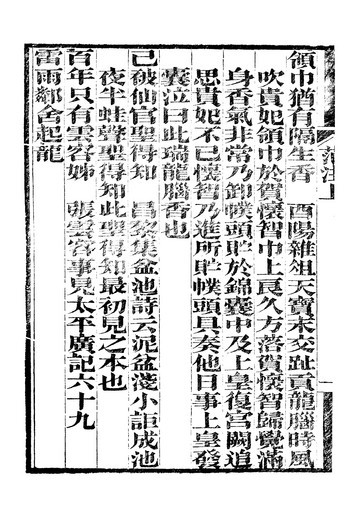 領巾猶有隔生香　酉陽雜俎天寶末交趾貢龍腦時風
吹貴妃領巾於賀懷智巾上良久方落賀懷智歸覺滿
身香氣非常乃卸幞頭貯於錦囊中及上皇復宮闕追
思貴妃不已懷智乃進所貯幞頭具奏他日事上皇發
囊泣曰此瑞龍腦香也
已破仙官聖得知　昌黎集盆池詩云泥盆淺小詎成池
夜半蛙聲聖得知此聖得知最初見之本也
百年只有雲容姊　張雲容事見太平廣記六十九
雷雨鄰舍起龍